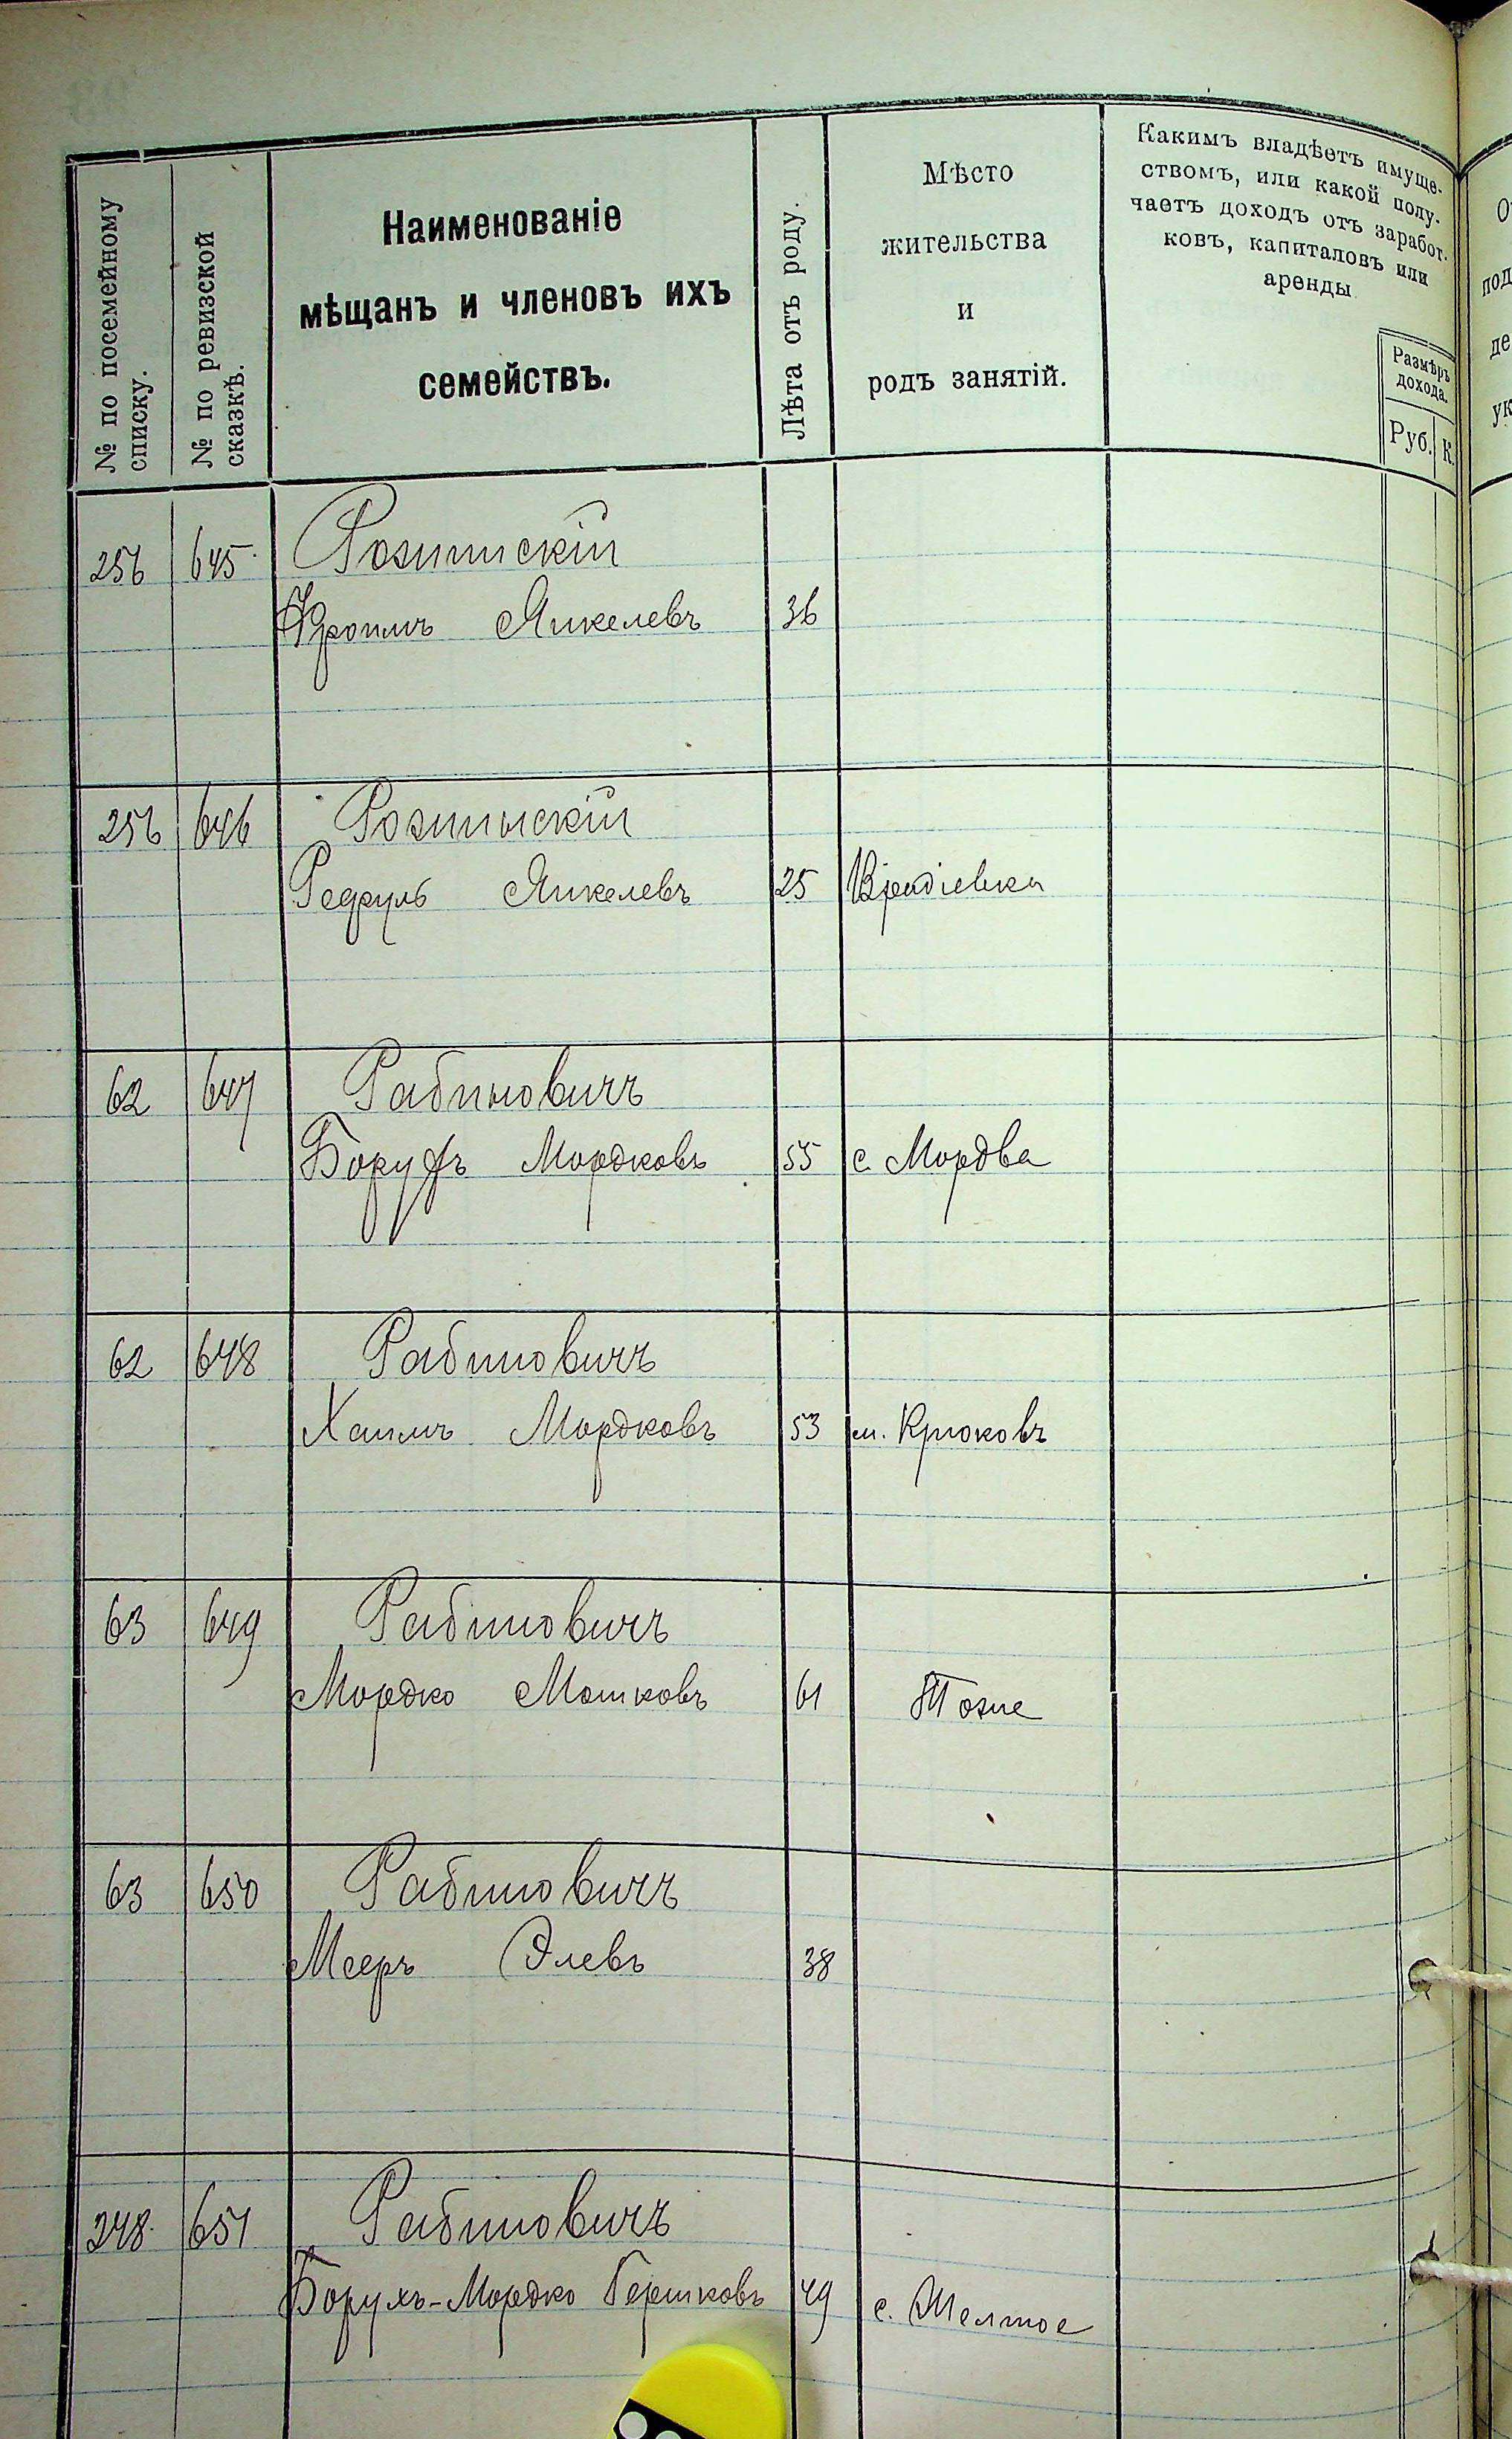 № по посемейному
списку.
№ по ревизской
сказкѣ.
Наименованіе
мѣщанъ и членовъ ихъ
семействъ.
Лѣта отъ роду.
Мѣсто
жительства
и
родъ занятій.
Какимъ владѣетъ имуще-
ствомъ, или какой полу-
чаетъ доходъ отъ заработ-
ковъ, капиталовъ или
аренды
Размѣръ
дохода.
Руб. К.
256 645
Янкелевъ 36
256 646
Янкелевъ 25
62 647 Рабиновичъ
Борухъ Мордковъ 55 с. Мордва
62 648 Рабиновичъ
Хаимъ Мордковъ 53 м. Крюковъ
63 649 Рабиновичъ
Мордко Мошковъ 61 Тоже
63 650 Рабиновичъ
Мееръ Элевъ 38
248 651 Рабиновичъ
Борухъ-Мордко Гершковъ 49 с. Желтое